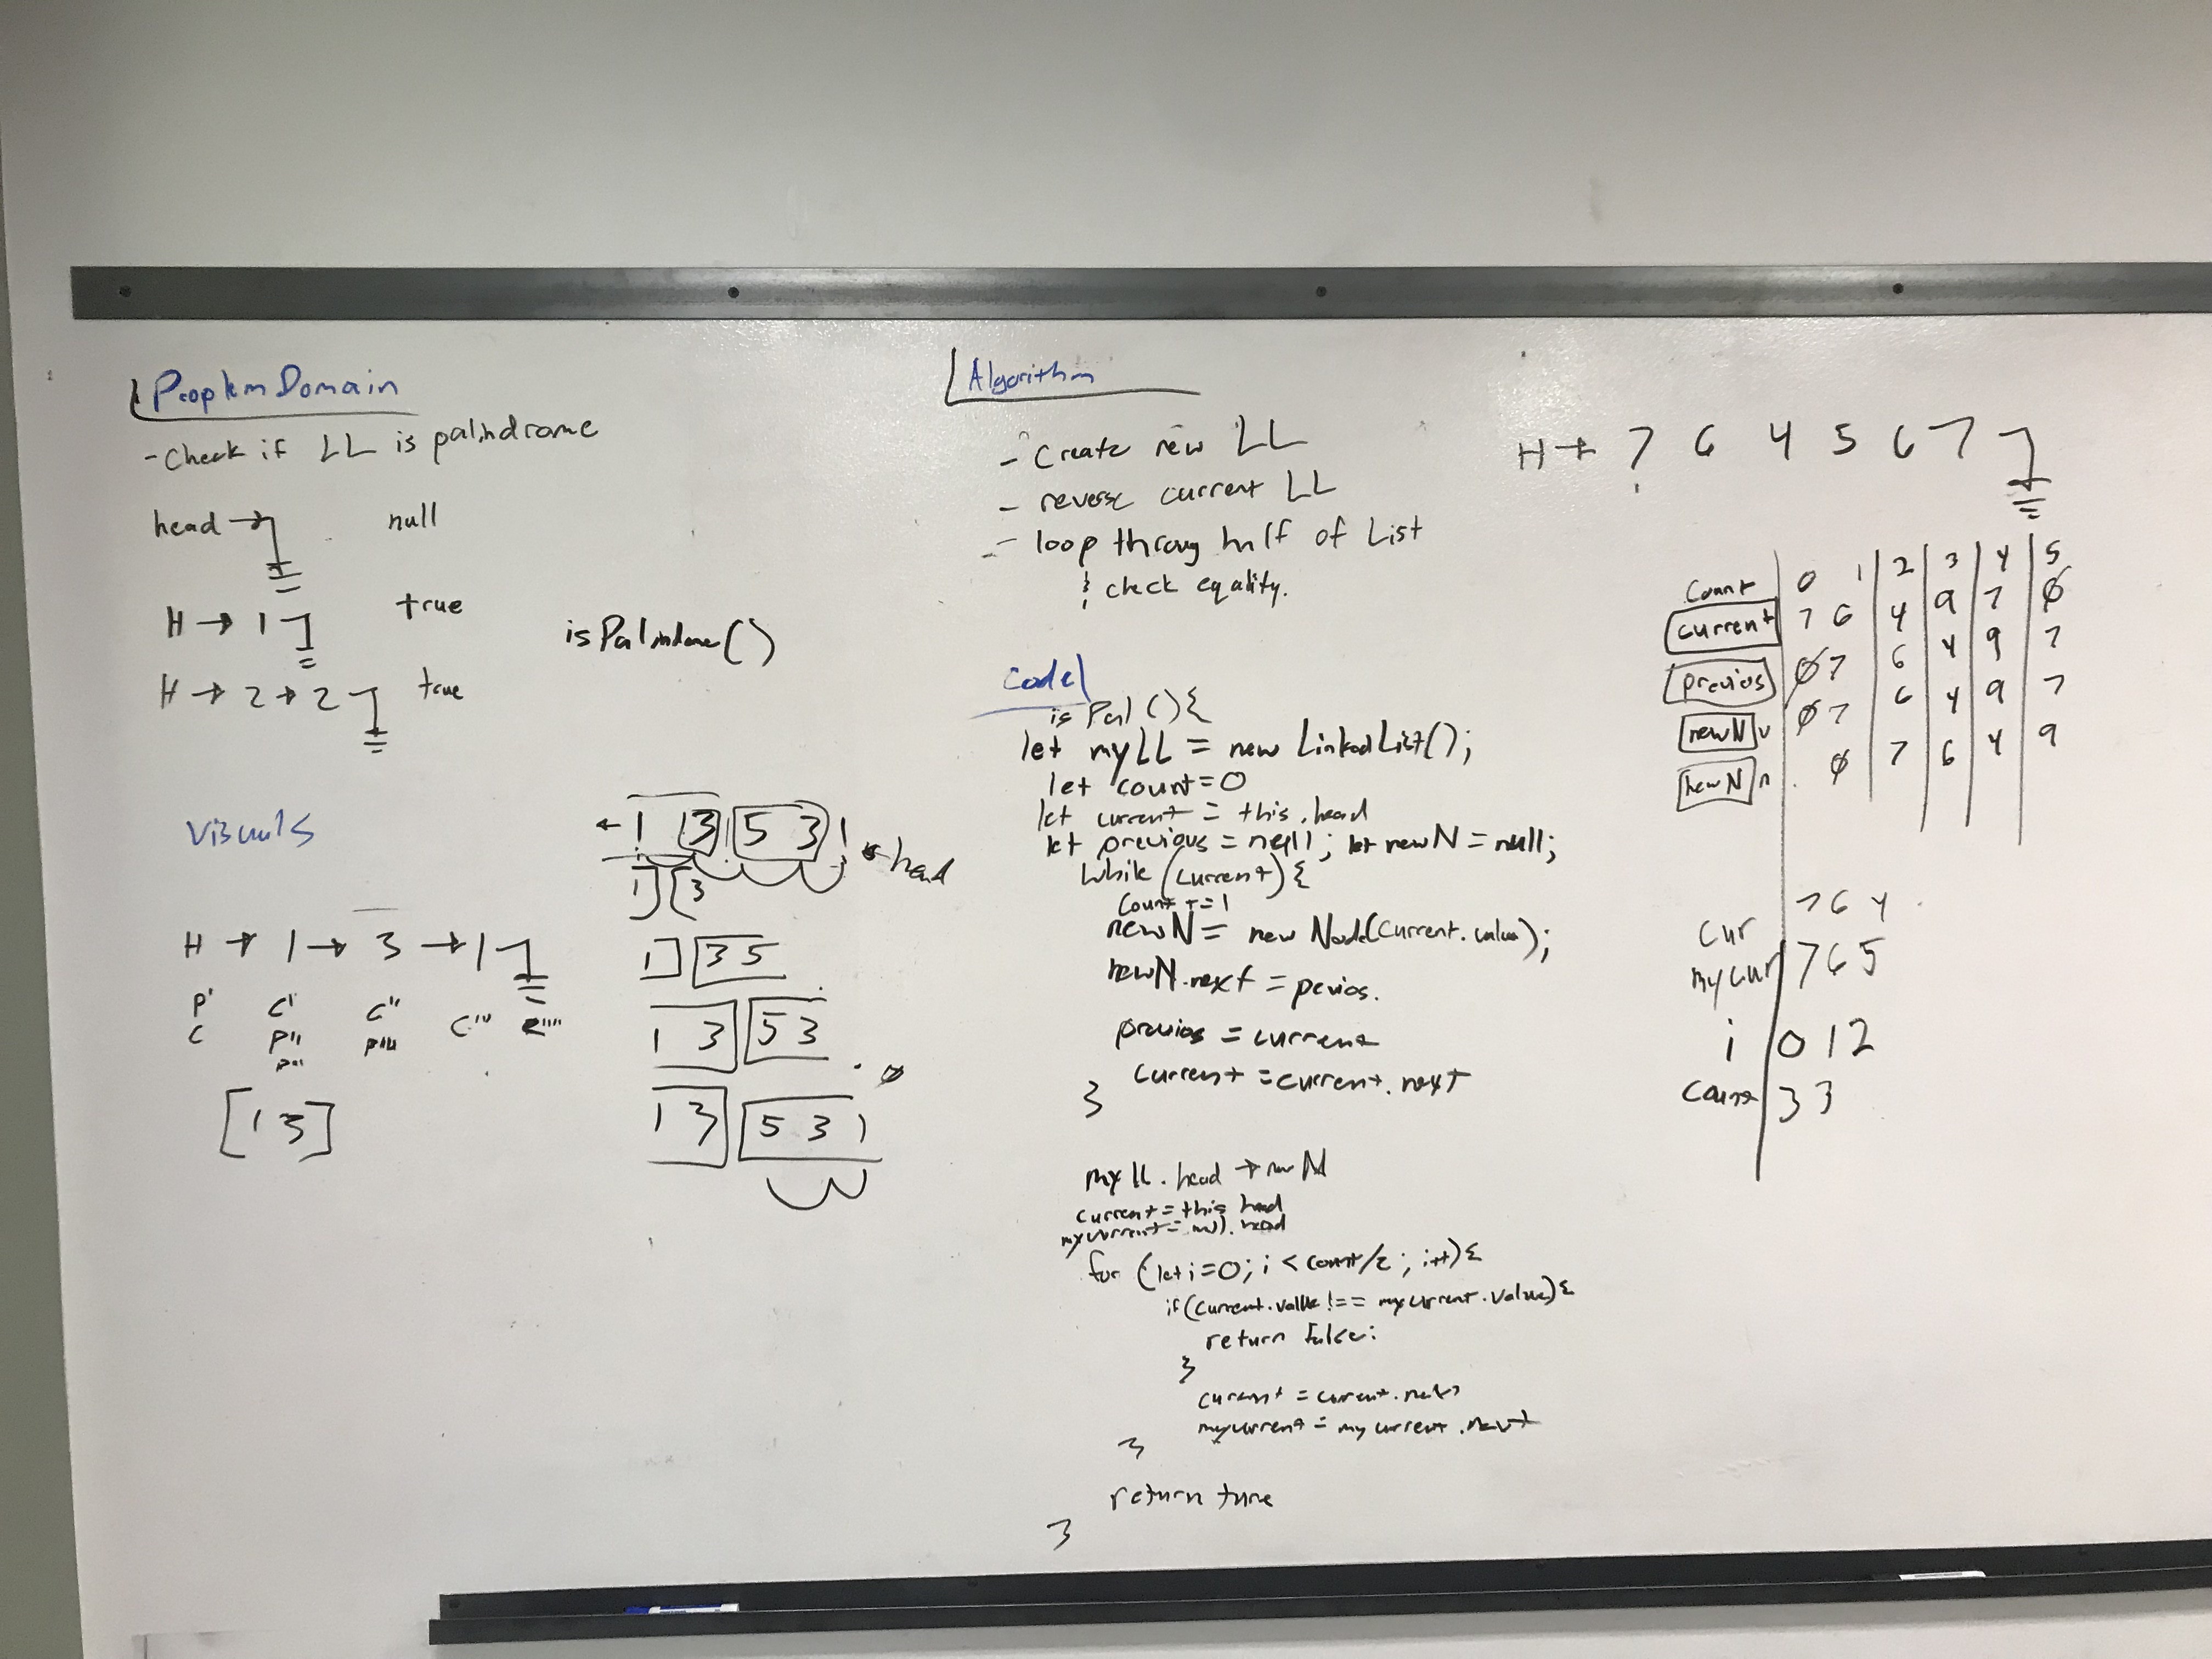 Problem Domain
- Check if LL is palindrome
head → null
H → 1 true
H → 2 → 2 true
isPalindrome()
Visuals
H → 1 → 3 → 1
P' C' C''
C P'' P''' C''' C''''
P'''
[1 3]
← 1 3 5 3 1 ← head
1] [3
1] [3 5
1 3] [5 3
∅
1 3] [5 3 1
Algorithm
- Create new LL
- reverse current LL
- loop throug half of List
& check equality.
Code
isPal(){
let myLL = new LinkedList();
let count=0
let current = this.head
let previous = null; let newN = null;
while (current) {
Count +=1
newN = new Node(current.value);
newN.next = pevios.
previos = current
current = current.next
}
myll.head → newN
current = this head
mycurrent = myll.head
for (let i=0; i < count/2; i++){
if(current.value !== mycurrent.value){
return false;
}
current = current.next
mycurrent = mycurrent.next
}
return true
}
H → 7 6 4 5 6 7
Count 0 1 2 3 4 5
current 7 6 4 9 7 ∅
previos ∅ 7 6 4 9 7
newN v ∅ 7 6 4 9 7
newN n ∅ 7 6 4 9
7 6 4
cur
mycur 7 6 5
i 0 1 2
Count 3 3